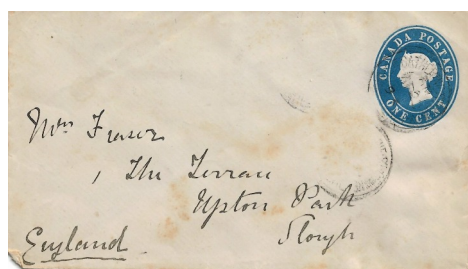 CANADA POSTAGE
ONE CENT
Mrs Fraser
1 The Terrace
Upton Park
Slough
England